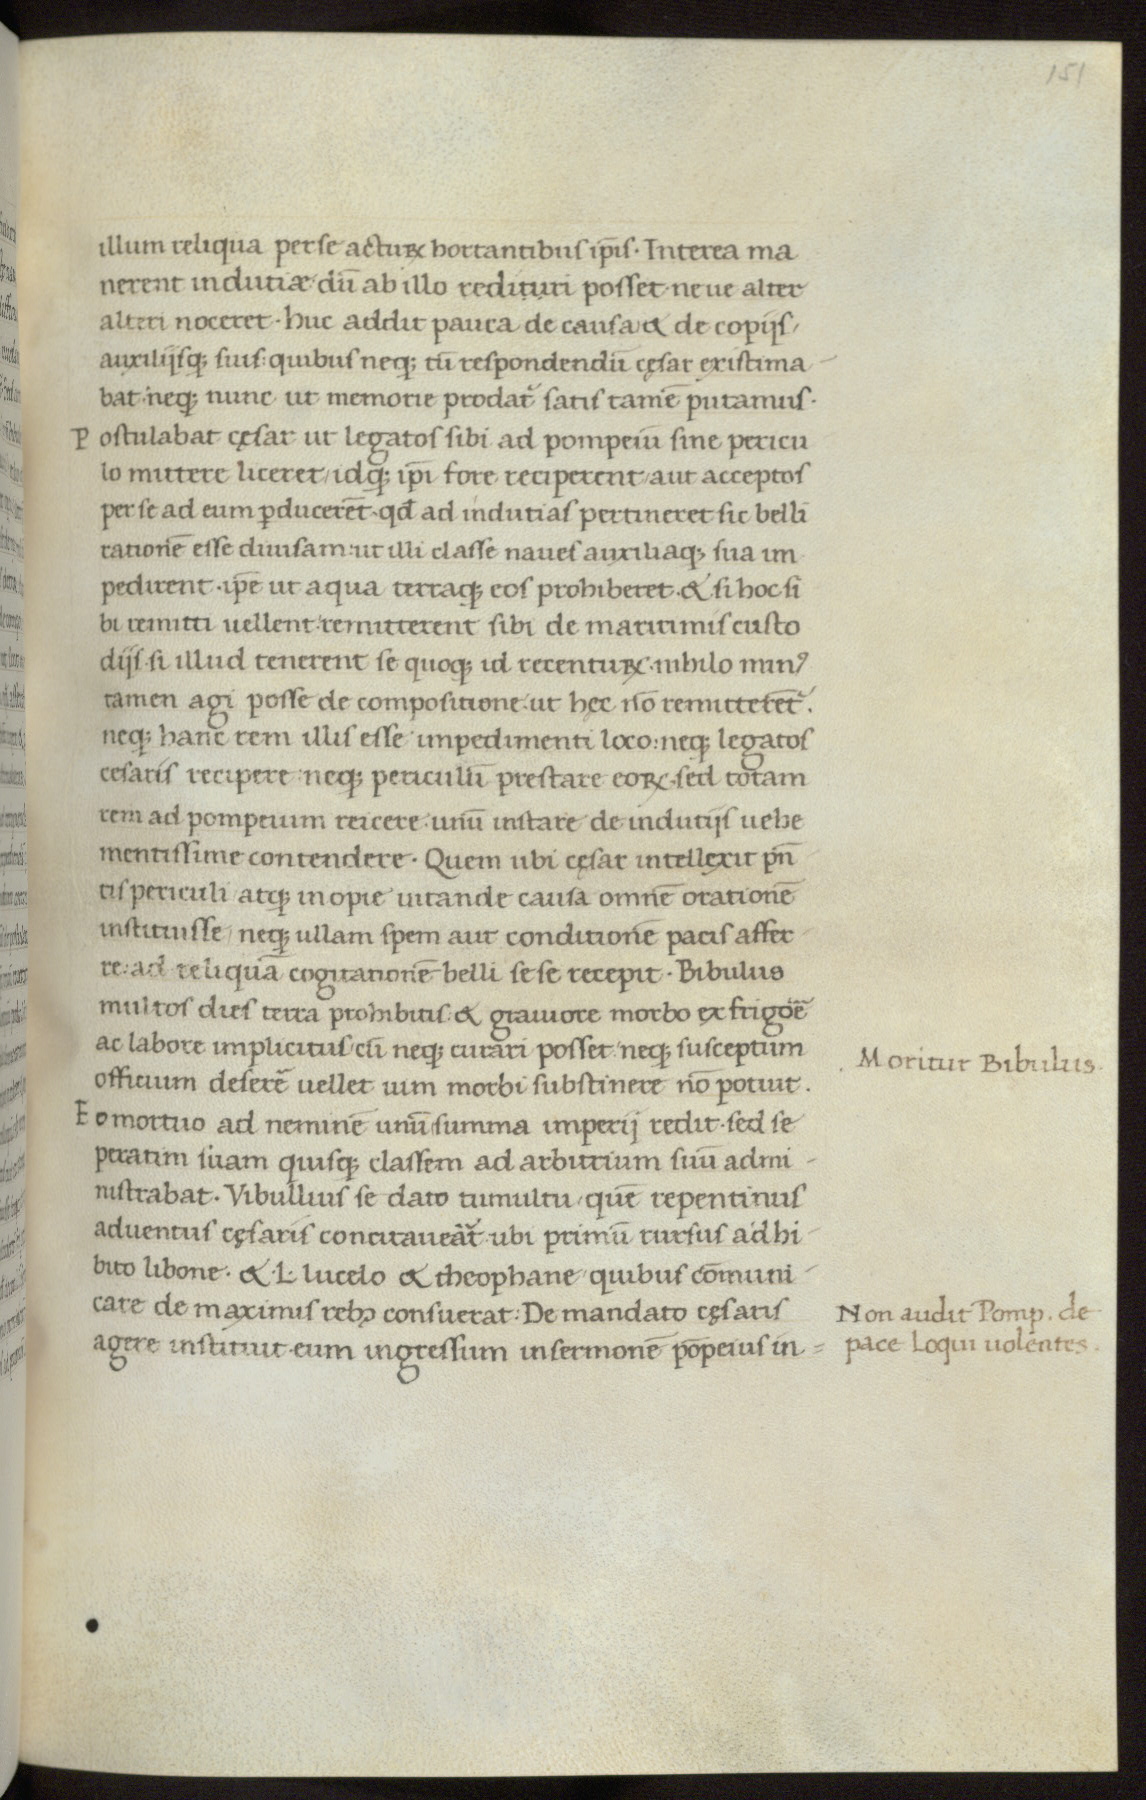 151
illum reliqua per se actuꝝ hortantibus ip̄is · Interea ma
nerent indutiæ dū ab illo redituri posset · neue alter
alteri noceret · huc addit pauca de causa & de copijs /
auxilijsq; suis : quibus neq; tū respondendū cęsar existima
bat · neq; nunc ut memorie prodat᷑ satis tamē putamus ·
Postulabat cęsar ut legatos sibi ad pompeiū sine pericu
lo mittere liceret / idq; ip̄i fore reciperent / aut acceptos
per se ad eum ꝑducerēt · qđ ad indutias pertineret sic belli
rationē esse diuisam : ut illi classe naues auxiliaq; sua im
pedirent · ip̄e ut aqua terraq; eos prohiberet · & si hoc si
bi remitti uellent · remitterent sibi de maritimis custo
dijs · si illud tenerent se quoq; id retentuꝝ · nihilo minꝰ
tamen agi posse de compositione · ut hęc nō remitterēt᷑ .
neq; hanc rem illis esse impedimenti loco : neq; legatos
cesaris recipere · neq; periculū prestare eoꝝ · sed totam
rem ad pompeium reicere · unū instare de indutijs uehe
mentissime contendere · Quem ubi cęsar intellexit pn̄
tis periculi / atq; inopie uitande causa omnē orationē
instituisse / neq; ullam spem aut conditionē pacis affer
re : ad reliquā cogitationē belli sese recepit · Bibulus
multos dies terra prohibitus · & grauiore morbo ex frigoē
ac labore implicitus / cū neq; curari posset · neq; susceptum
officium deserē uellet uim morbi substinere nō potuit .
Eo mortuo ad neminē unū summa imperij redit · sed se
peratim suam quisq; classem ad arbitrium suū admi
nistrabat · Vibullius se dato tumultu / quē repentinus
aduentus cęsaris concitaueāt᷑ · ubi primū rursus adhi
bito libone · & · L · lucelo & theophane / quibus cōmuni
care de maximis rebꝫ consuerat : De mandato cęsaris
agere instituit · eum ingressum in sermonē pōpeius in =
Moritur Bibulus.
Non audit Pomp. de
pace Loqui uolentes.